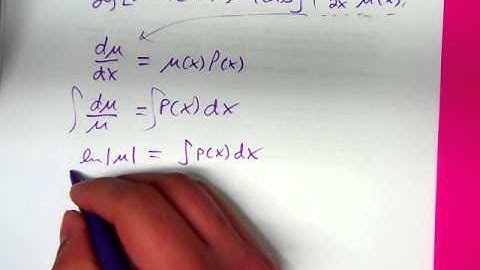 dμ/dx = μ(x)P(x)
∫ dμ/μ = ∫P(x)dx
ln|μ| = ∫P(x)dx